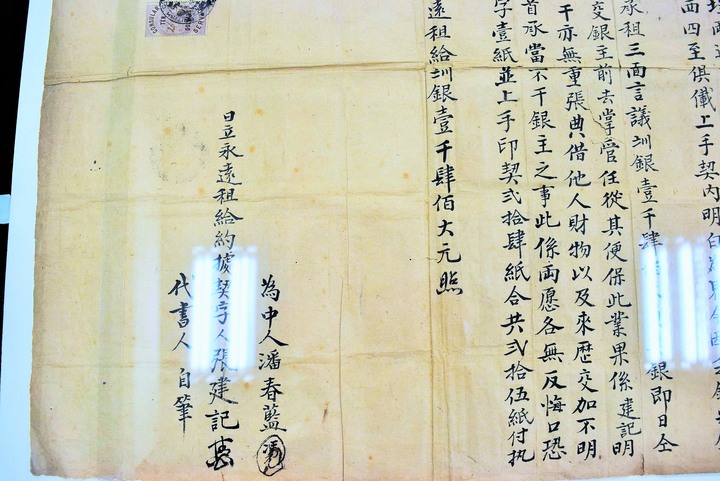 面四至俱儎上手契內明白
承租三面言議圳銀壹千肆 銀即日仝
交銀主前去掌管任從其便保此業果係建記明
干亦無重張典借他人財物以及來歷交加不明
首承當不干銀主之事此係兩愿各無反悔口恐
字壹紙並上手印契弍拾肆紙合共弍拾伍紙付执
遠租給圳銀壹千肆佰大元照
為中人潘春藍
日立永遠租給約據契字人張建記
代書人自筆